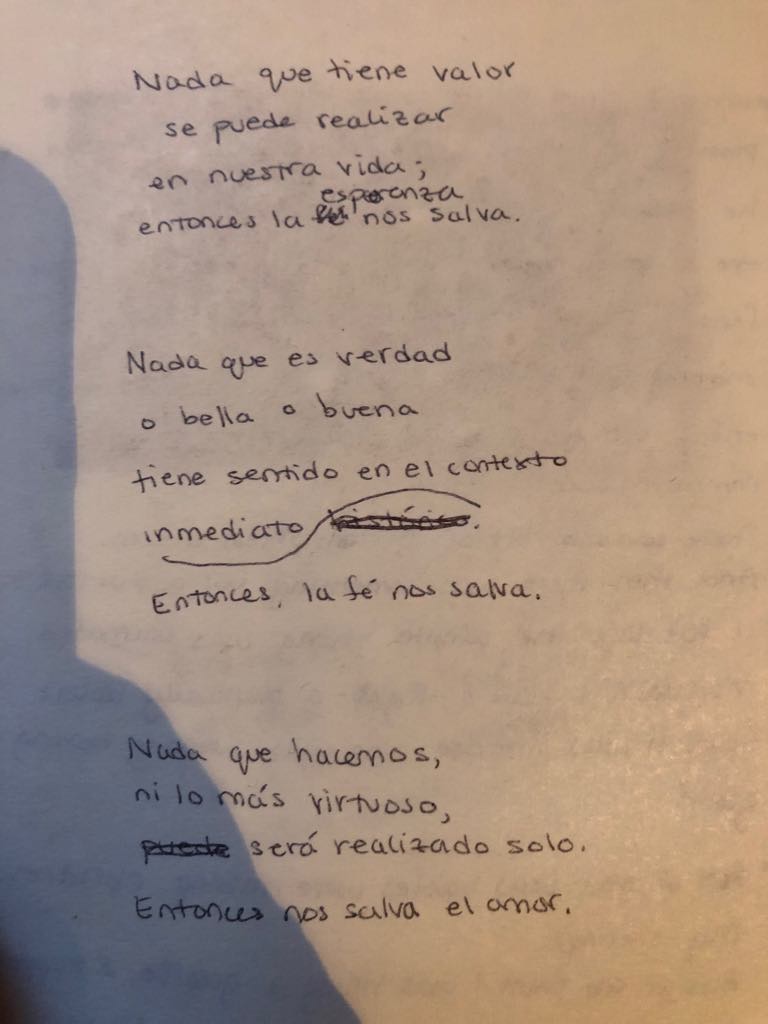 Nada que tiene valor
se puede realizar
en nuestra vida;
esperenza
entonces la fé nos salva.
Nada que es verdad
o bella o buena
tiene sentido en el contexto
inmediato histórico.
Entonces, la fé nos salva.
Nada que hacemos,
ni lo más virtuoso,
puede será realizado solo.
Entonces nos salva el amor.